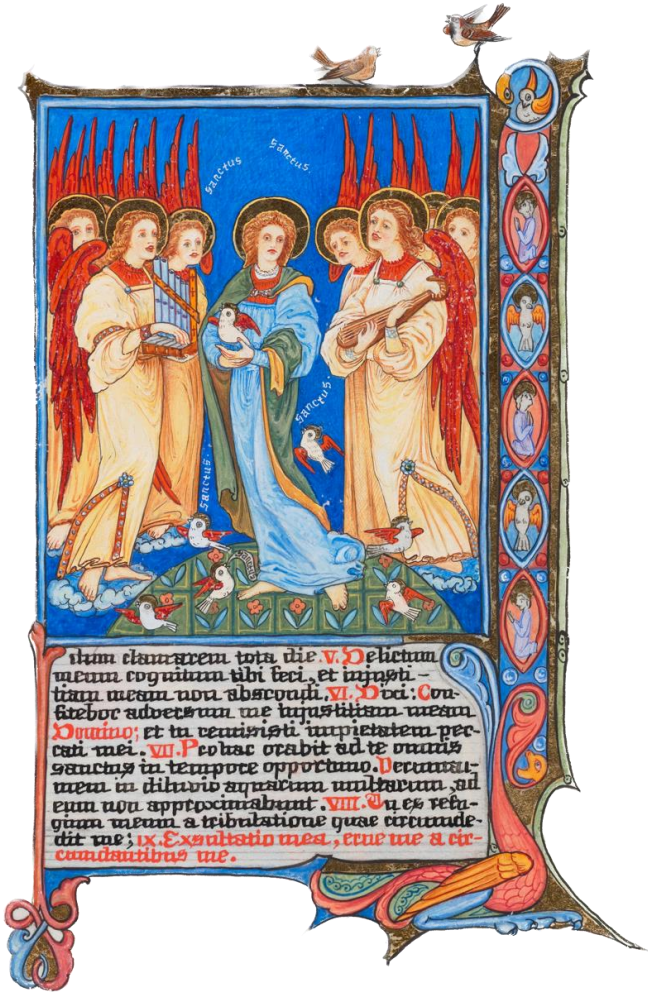 Sanctus
Sanctus.
Sanctus.
Sanctus.
dum clamarem tota die. V. Delictum
meum cognitum tibi feci, et injusti-
tiam meam non abscondi. VI. Dixi: Con-
fitebor adversum me injustitiam meam
Domino; et tu remisisti impietatem pec-
cati mei. VII. Pro hac orabit ad te omnis
sanctus in tempore opportuno. Verumtam-
men in diluvio aquarum multarum, ad
eum non approximabunt. VIII. Tu es refu-
gium meum a tribulatione quae circumde-
dit me; IX. Exsultatio mea, erue me a cir-
cumdantibus me.